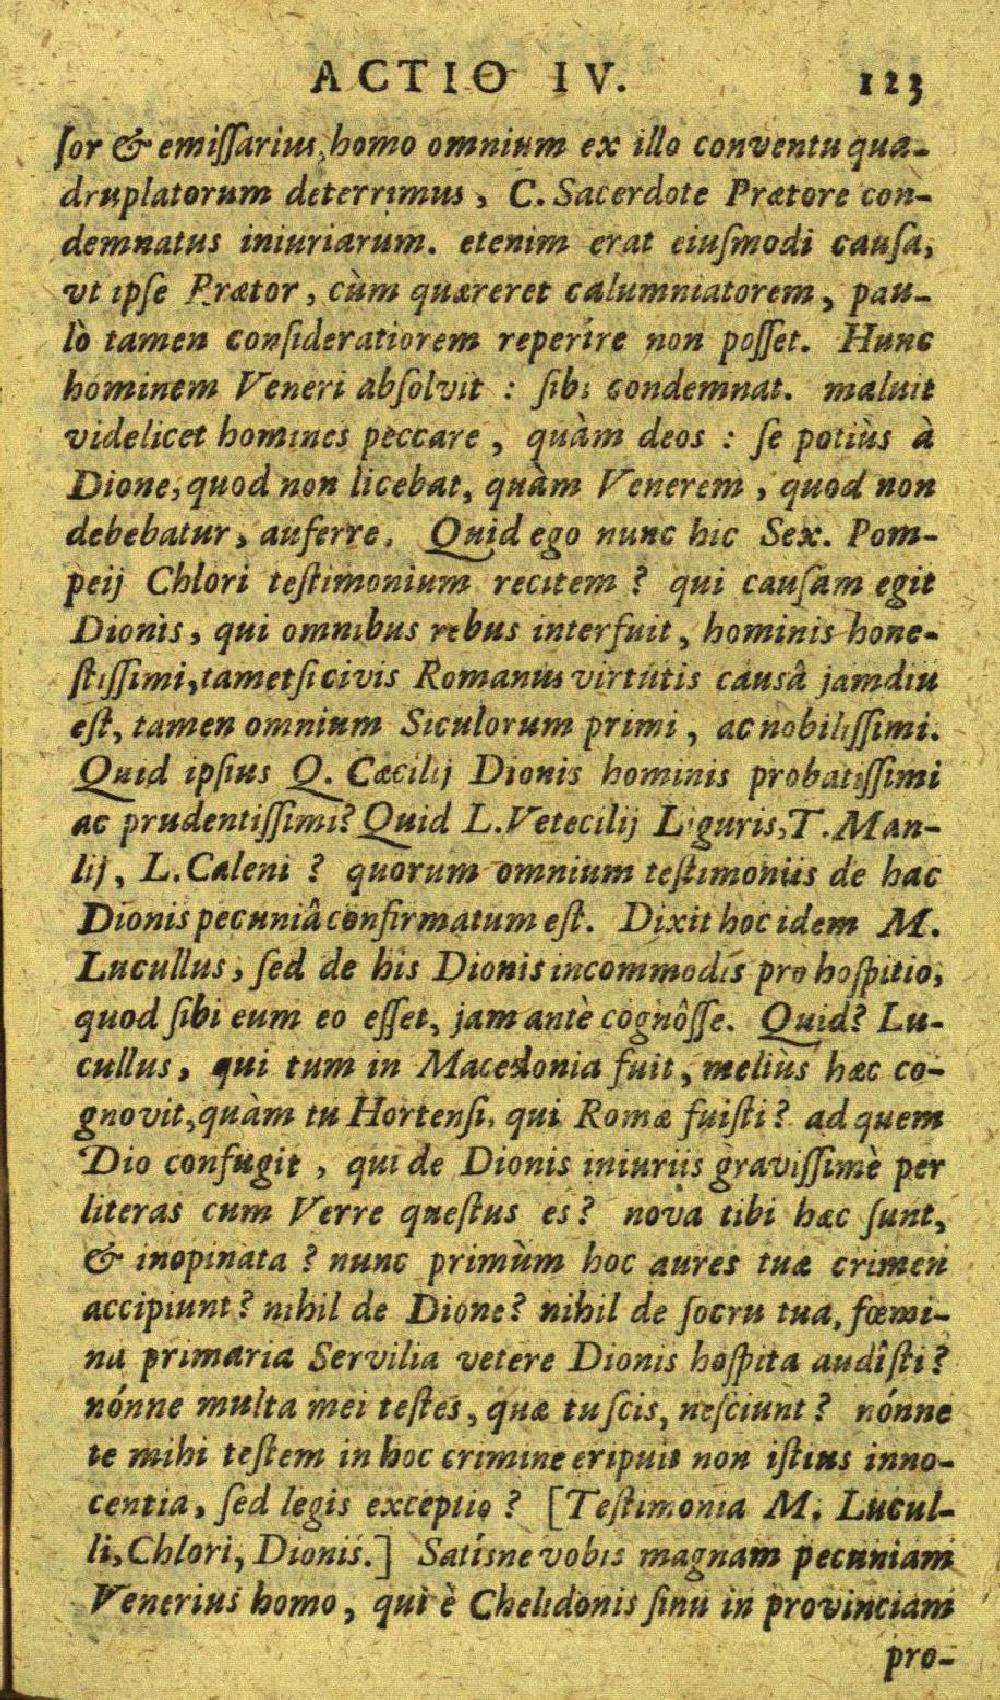 ACTIO IV. 123
ſor & emiſſarius, homo omnium ex illo conventu qua-
druplatorum deterrimus, C. Sacerdote Prætore con-
demnatus iniuriarum. etenim erat eiuſmodi cauſa,
vt ipſe Prætor, cùm quæreret calumniatorem, pau-
lò tamen conſideratiorem reperíre non poſſet. Hunc
hominem Veneri abſolvit : ſibi condemnat. maluit
videlicet homines peccare, quàm deos : ſe potiùs à
Dione, quod non licebat, quàm Venerem, quod non
debebatur, auferre. Quid ego nunc hic Sex. Pom-
peij Chlori teſtimonium recitem ? qui cauſam egit
Dionis, qui omnibus rebus interfuit, hominis hone-
ſtiſſimi, tametſi civis Romanus virtutis causâ jamdiu
eſt, tamen omnium Siculorum primi, ac nobiliſſimi.
Quid ipſius Q. Cæcilij Dionis hominis probatiſſimi
ac prudentiſſimi? Quid L. Vetecilij Liguris, T. Man-
lij, L. Caleni ? quorum omnium teſtimoniis de hac
Dionis pecuniâ confirmatum eſt. Dixit hoc idem M.
Lucullus, ſed de his Dionis incommodis pro hoſpitio,
quod ſibi eum eo eſſet, jam antè cognôſſe. Quid? Lu-
cullus, qui tum in Macedonia fuit, meliùs hæc co-
gnovit, quàm tu Hortenſi, qui Romæ fuiſti? ad quem
Dio confugit, qui de Dionis iniuriis graviſſimè per
literas cum Verre queſtus es? nova tibi hæc ſunt,
& inopinata ? nunc primùm hoc aures tuæ crimen
accipiunt? nihil de Dione? nihil de ſocru tua, fœmi-
na primaria Servilia vetere Dionis hoſpita audîſti?
nónne multa mei teſtes, quæ tu ſcis, neſciunt? nónne
te mihi teſtem in hoc crimine eripuit non iſtius inno-
centia, ſed legis exceptio ? [Teſtimonia M. Lucul-
li, Chlori, Dionis.] Satísne vobis magnam pecuniam
Venerius homo, qui è Chelidonis ſinu in provinciam
pro-